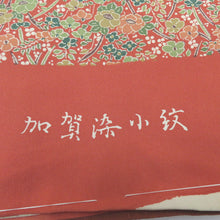 加賀染小紋